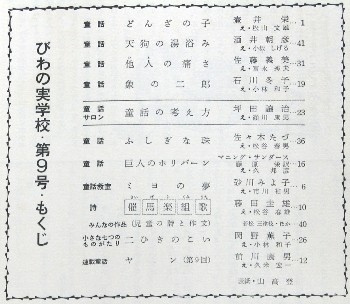 びわの実学校・第9号・もくじ
童話 どんぎの子 壷井栄 1
え・松山文雄
童話 天狗の湯浴み 酒井朝彦 41
童話 他人の痛さ 佐藤義美 31
童話 象の二郎 石川冬子 19
え・小林和子
童話サロン 童話の考え方 坪田譲治 23
童話 ふしぎな珠 佐々木たづ 36
え・松谷春男
童話 巨人のホリバーン マニング・サンダース 16
え・久邦彦
童話教室 ミヨの夢 砂川みよ子 6
詩 催馬楽組歌 藤田圭雄 10
え・松谷春雄
みんなの作品 (児童の詩と作文) 40
小さな七つのものがたり 二ひきのこい 関野蕉子 26
え・小林和子
連載童話 ヤン (第9回) 前川康男 12
え・久米宏一
表紙・山高登